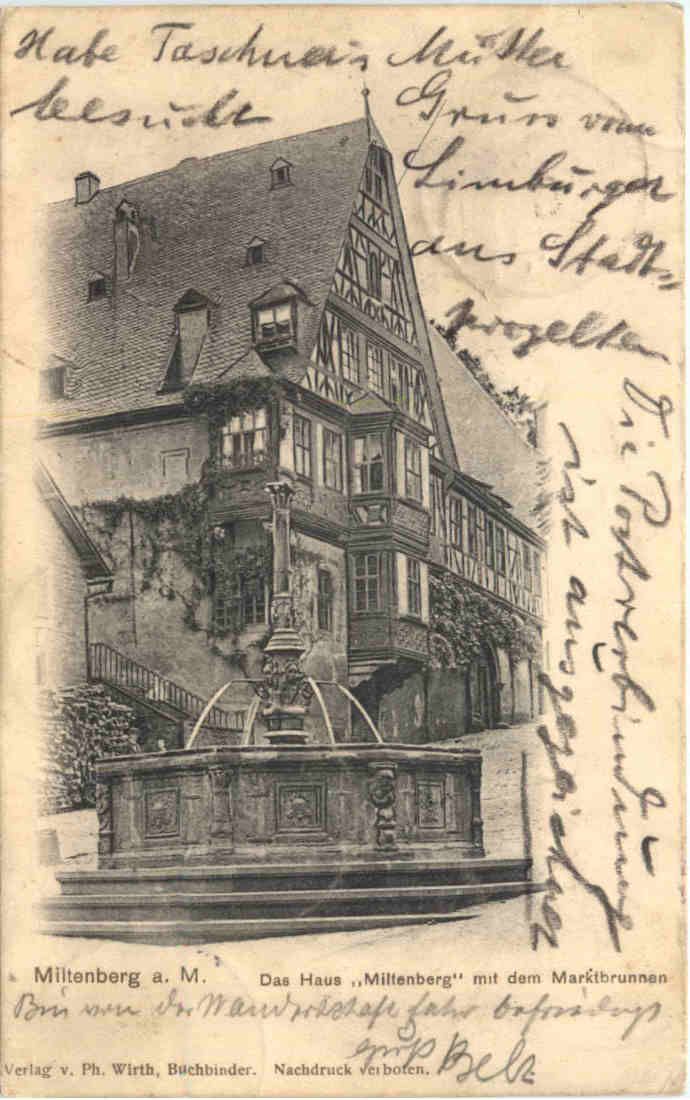 Habe Taschner's Mutter
besucht
Gruss vom
Limburger
aus Stadt-
prozelten
Die Postverbindung
ist ausgezeichnet
Miltenberg a. M.
Das Haus „Miltenberg" mit dem Marktbrunnen
Bin von der Wanderschaft sehr befriedigt
Gruß
Verlag v. Ph. Wirth, Buchbinder. Nachdruck verboten.